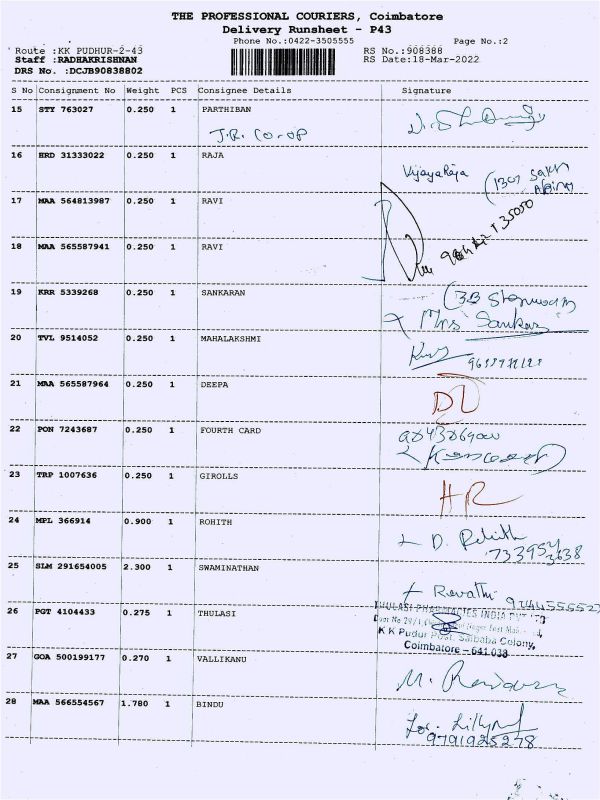 THE PROFESSIONAL COURIERS, Coimbatore
Delivery Runsheet - P43
Phone No.:0422-3505555 Page No.:2
Route :KK PUDHUR-2-43 RS No.:908388
Staff :RADHAKRISHNAN RS Date:18-Mar-2022
DRS No. :DCJB90838802
S No Consignment No Weight PCS Consignee Details Signature
15 STY 763027 0.250 1 PARTHIBAN
J.R. CO-OP
16 HRD 31333022 0.250 1 RAJA
VijayaRaja
17 MAA 564813987 0.250 1 RAVI
18 MAA 565587941 0.250 1 RAVI
19 KRR 5339268 0.250 1 SANKARAN
Mrs Sankar
20 TVL 9514052 0.250 1 MAHALAKSHMI
21 MAA 565587964 0.250 1 DEEPA
22 PON 7243687 0.250 1 FOURTH CARD
23 TRP 1007636 0.250 1 GIROLLS
HR
24 MPL 366914 0.900 1 ROHITH
D. Rohith
25 SLM 291654005 2.300 1 SWAMINATHAN
Revathi
26 PGT 4104433 0.275 1 THULASI
THULASI PHARMACIES INDIA PVT LTD
K K Pudur Post, Saibaba Colony,
Coimbatore - 641 038
27 GOA 500199177 0.270 1 VALLIKANU
28 MAA 566554567 1.780 1 BINDU
9791925278